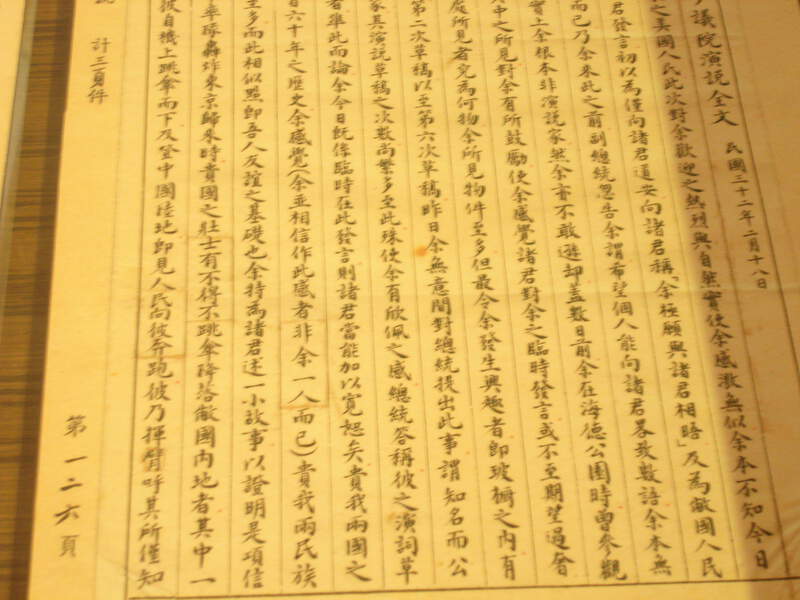 議院演說全文 民國三十二年二月十八日
之美國人民此次對余歡迎之熱烈與自然實使余感激無似余本不知今日
君發言初以為僅向諸君道安向諸君稱「余極願與諸君相晤」及為敝國人民
而已乃余來此之前副總統忽告余謂希望個人能向諸君畧致數語余本無
實上余根本非演說家然余亦不敢遜却蓋數日前余在海德公園時曾參觀
中之所見對余有所鼓勵使余感覺諸君對余之臨時發言或不至期望過奢
庭所見者究為何物余所見物件至多但最令余發生興趣者即玻櫥之內有
第二次草稿以至第六次草稿昨日余無意間對總統提出此事謂知名而公
家其演說草稿之次數尚繁多至此殊使余有欣佩之感總統答稱彼之演詞草
者準此而論余今日既係臨時在此發言則諸君當能加以寬恕矣貴我兩國之
百六十年之歷史余感覺(余並相信作此感者非余一人而已)貴我兩民族
至多而此相似點即吾人友誼之基礎也余特為諸君述一小故事以證明是項信
率隊轟炸東京歸來時貴國之壯士有不得不跳傘降落敝國內地者其中一
彼自機上跳傘而下及登中國陸地即見人民向彼奔跑彼乃揮臂呼其所僅知
計三頁件
第一二六頁